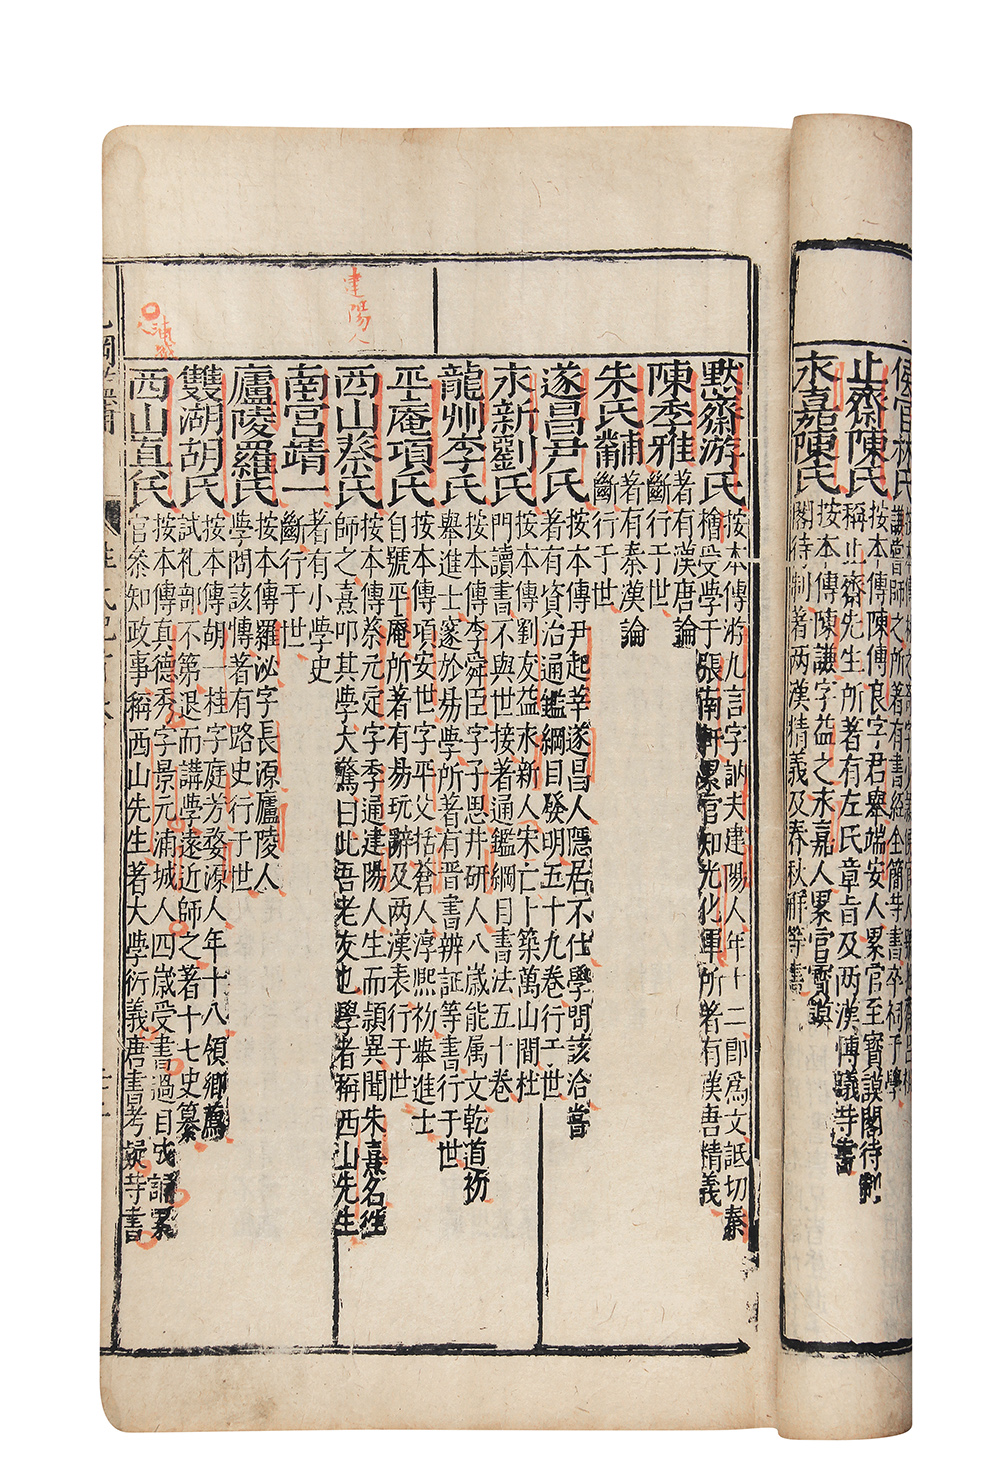 侯官林氏
止齋陳氏 按本傳陳傅良字君舉瑞安人累官至寶謨閣待制
稱止齋先生所著有左氏章旨及两漢博議等書
永嘉陳氏 按本傳陳謙字益之永嘉人累官寶謨
閣待制著两漢精義及春秋解等書
默齋游氏 按本傳游九言字訥夫建陽人年十二即爲文詆切秦
檜受學于張南軒累官知光化軍所著有漢唐精義
陳季雅 著有漢唐論
斷行于世
朱氏黼 著有秦漢論
斷行于世
遂昌尹氏 按本傳尹起莘遂昌人隱居不仕學問該洽嘗
著有資治通鑑綱目發明五十九卷行于世
永新劉氏 按本傳劉友益永新人宋亡卜築萬山間杜
門讀書不與世接著通鑑綱目書法五十卷
龍州李氏 按本傳李舜臣字子思井研人八歲能属文乾道初
舉進士邃於易學所著有晋書辨証等書行于世
平庵項氏 按本傳項安世字平父括蒼人淳熙初舉進士
自號平庵所著有易玩辭及两漢表行于世
西山蔡氏 按本傳蔡元定字季通建陽人生而頴異聞朱熹名徃
師之熹叩其學大驚曰此吾老友也學者稱西山先生
建陽人
南宫靖一 著有小學史
斷行于世
廬陵羅氏 按本傳羅泌字長源廬陵人
學問該博著有路史行于世
雙湖胡氏 按本傳胡一桂字庭芳婺源人年十八領鄉薦
試礼部不第退而講學遠近師之著十七史纂
西山真氏 按本傳真德秀字景元浦城人四歲受書過目成誦累
官叅知政事稱西山先生著大學衍義唐書考疑等書
浦城
人